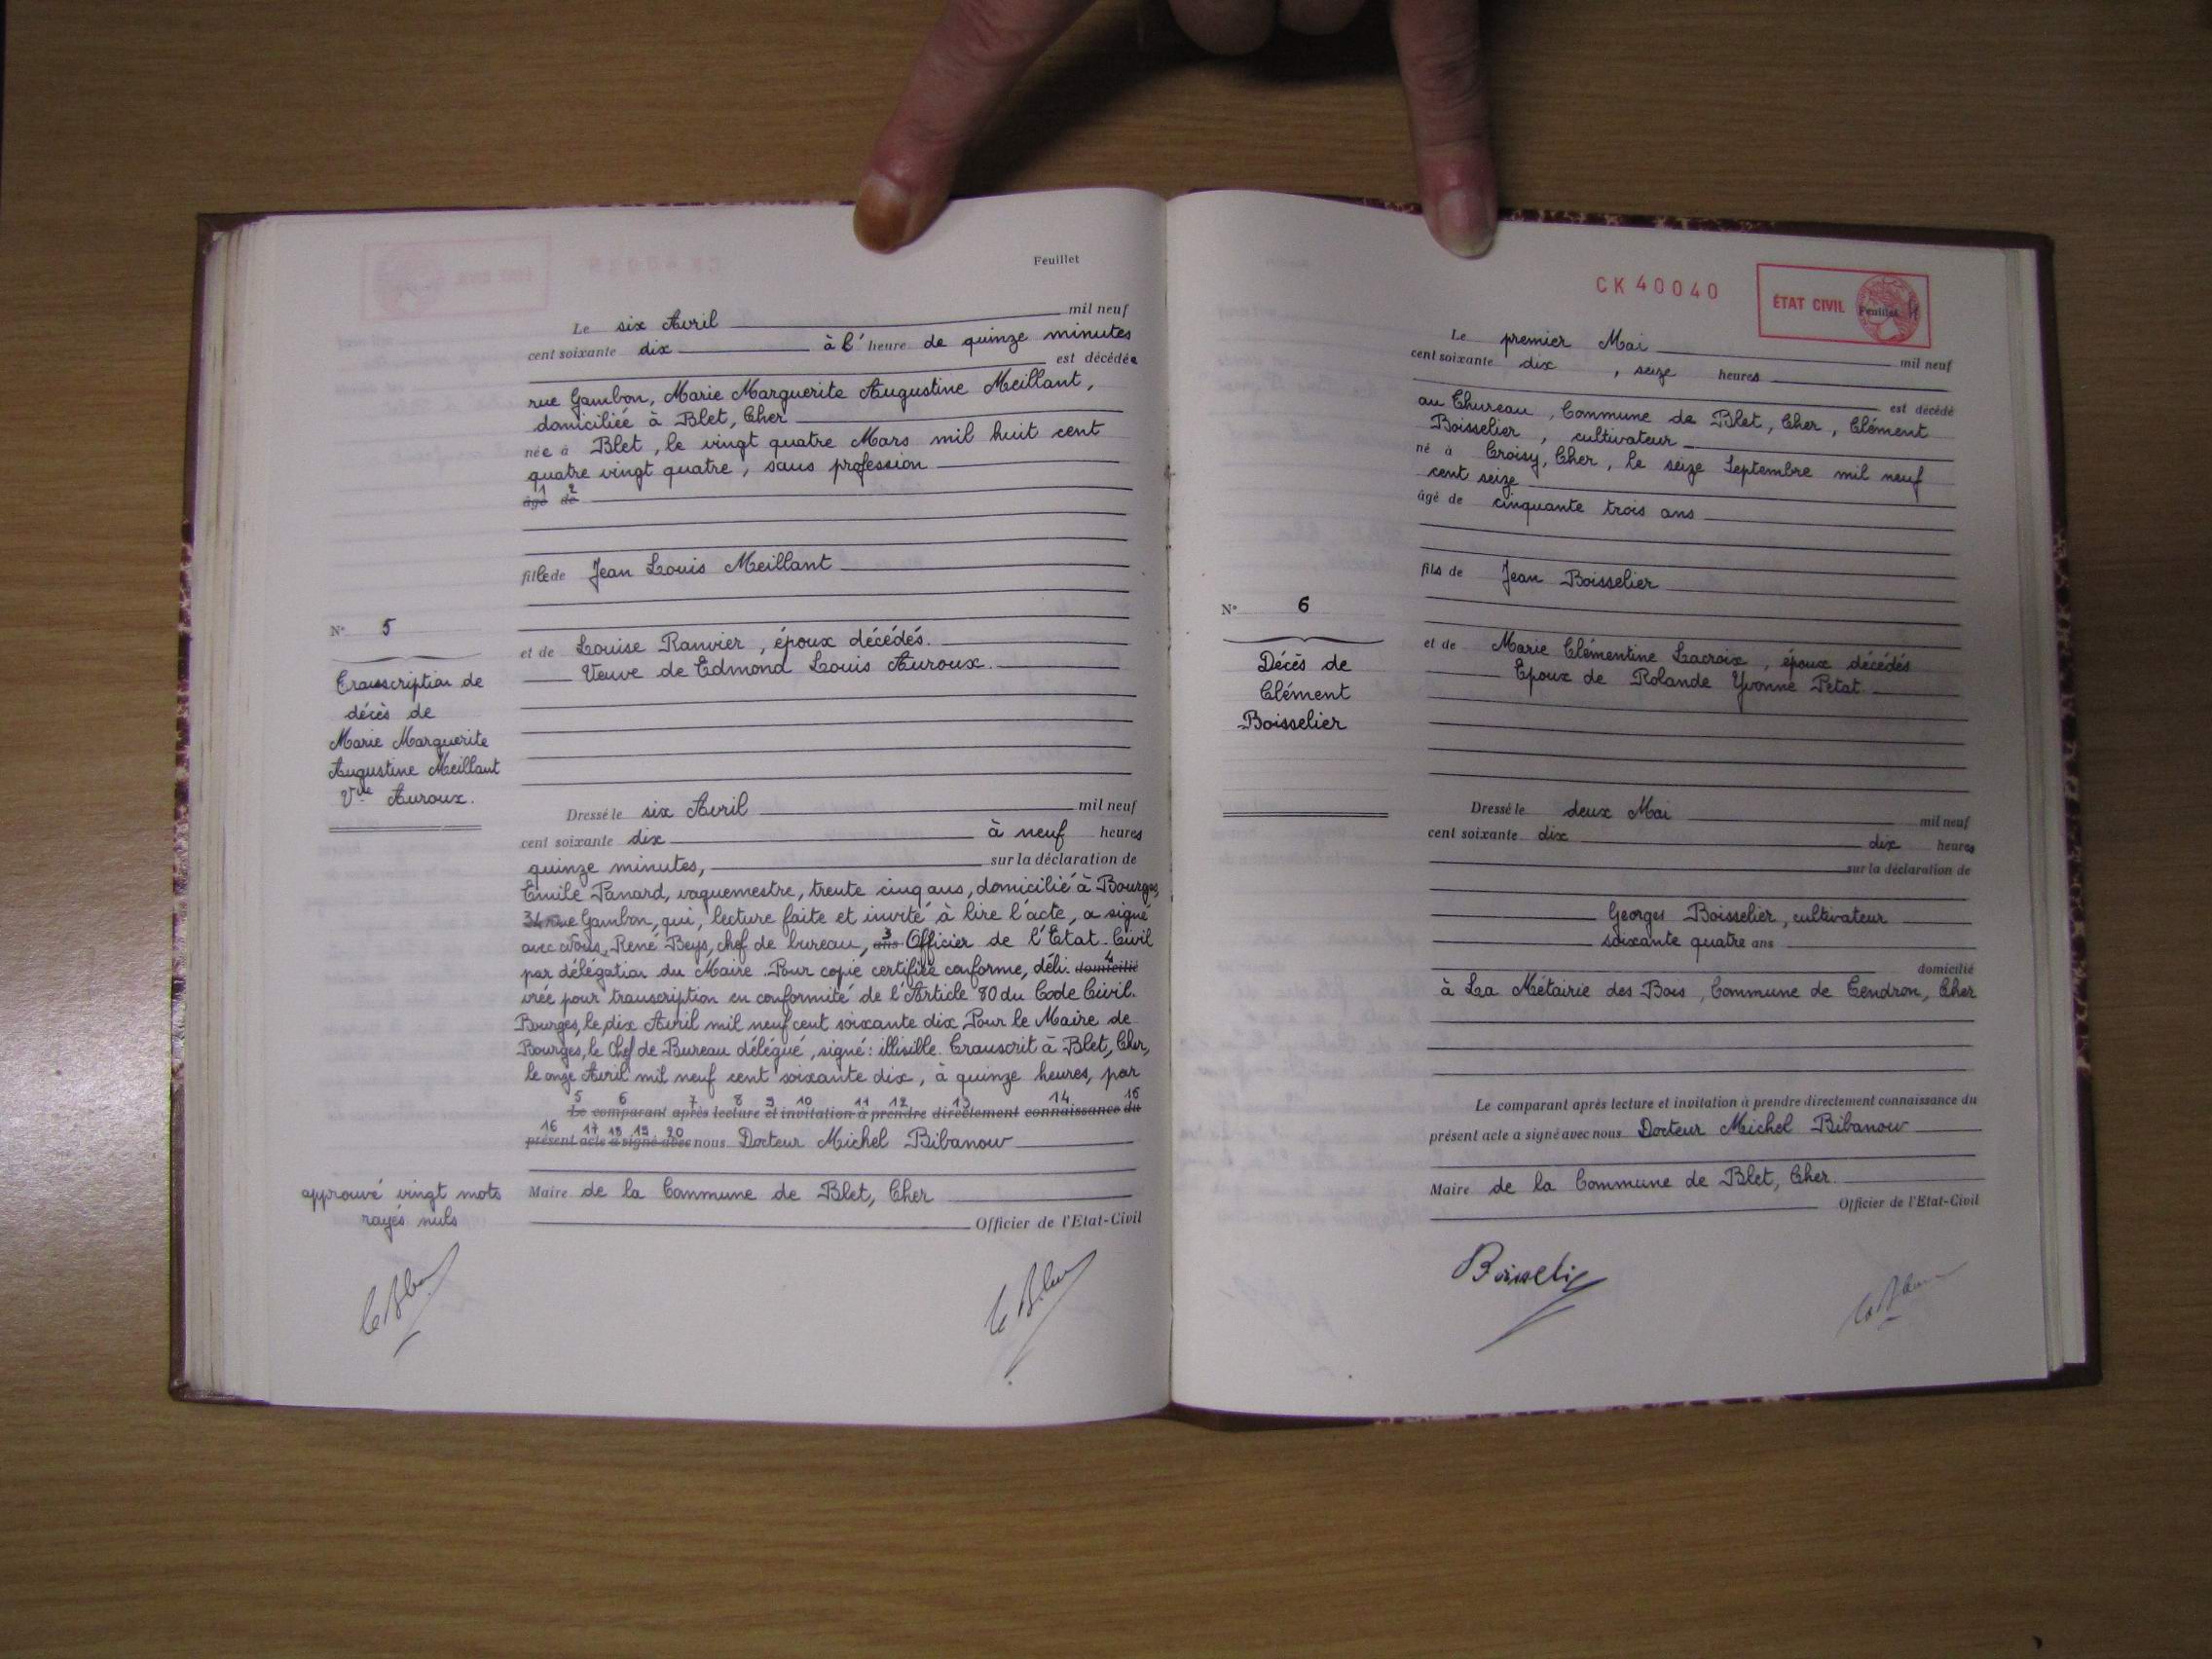 Feuillet
Le six Avril mil neuf
cent soixante dix à l'heure de quinze minutes
est décédée
rue Gambon, Marie Marguerite Augustine Meillant,
domiciliée à Blet, Cher
née à Blet, le vingt quatre Mars mil huit cent
quatre vingt quatre, sans profession
âgé 1 de 2
fille de Jean Louis Meillant
et de Louise Ranvier, époux décédés.
Veuve de Edmond Louis Auroux.
N° 5
Transcription de
décès de
Marie Marguerite
Augustine Meillant
Vve Auroux.
Dressé le six Avril mil neuf
cent soixante dix à neuf heures
quinze minutes, sur la déclaration de
Emile Panard, vaguemestre, trente cinq ans, domicilié à Bourges,
34 rue Gambon, qui, lecture faite et invité à lire l'acte, a signé
avec Nous, René Beys, chef de bureau, ans 3 Officier de l'Etat-Civil
par délégation du Maire. Pour copie certifiée conforme, déli- domicilié 4
vrée pour transcription en conformité de l'Article 80 du Code Civil.
Bourges, le dix Avril mil neuf cent soixante dix, Pour le Maire de
Bourges, le Chef de Bureau délégué, signé : illisible. Transcrit à Blet, Cher,
le onze Avril mil neuf cent soixante dix, à quinze heures, par
5 6 7 8 9 10 11 12 13 14 15
Le comparant après lecture et invitation à prendre directement connaissance du
16 17 18 19 20
présent acte a signé avec nous Docteur Michel Bibanow
Maire de la Commune de Blet, Cher
Officier de l'Etat-Civil
approuvé vingt mots
rayés nuls
CK 40040
ÉTAT CIVIL
Feuillet 4
Le premier Mai mil neuf
cent soixante dix, seize heures
est décédé
au Thureau, Commune de Blet, Cher, Clément
Boisselier, cultivateur
né à Croisy, Cher, le seize Septembre mil neuf
cent seize
âgé de cinquante trois ans
fils de Jean Boisselier
et de Marie Clémentine Lacroix, époux décédés
Epoux de Rolande Yvonne Petat
N° 6
Décès de
Clément
Boisselier
Dressé le deux Mai mil neuf
cent soixante dix dix heures
sur la déclaration de
Georges Boisselier, cultivateur
soixante quatre ans
domicilié
à La Métairie des Bois, Commune de Tendron, Cher
Le comparant après lecture et invitation à prendre directement connaissance du
présent acte a signé avec nous Docteur Michel Bibanow
Maire de la Commune de Blet, Cher.
Officier de l'Etat-Civil
Boisselier